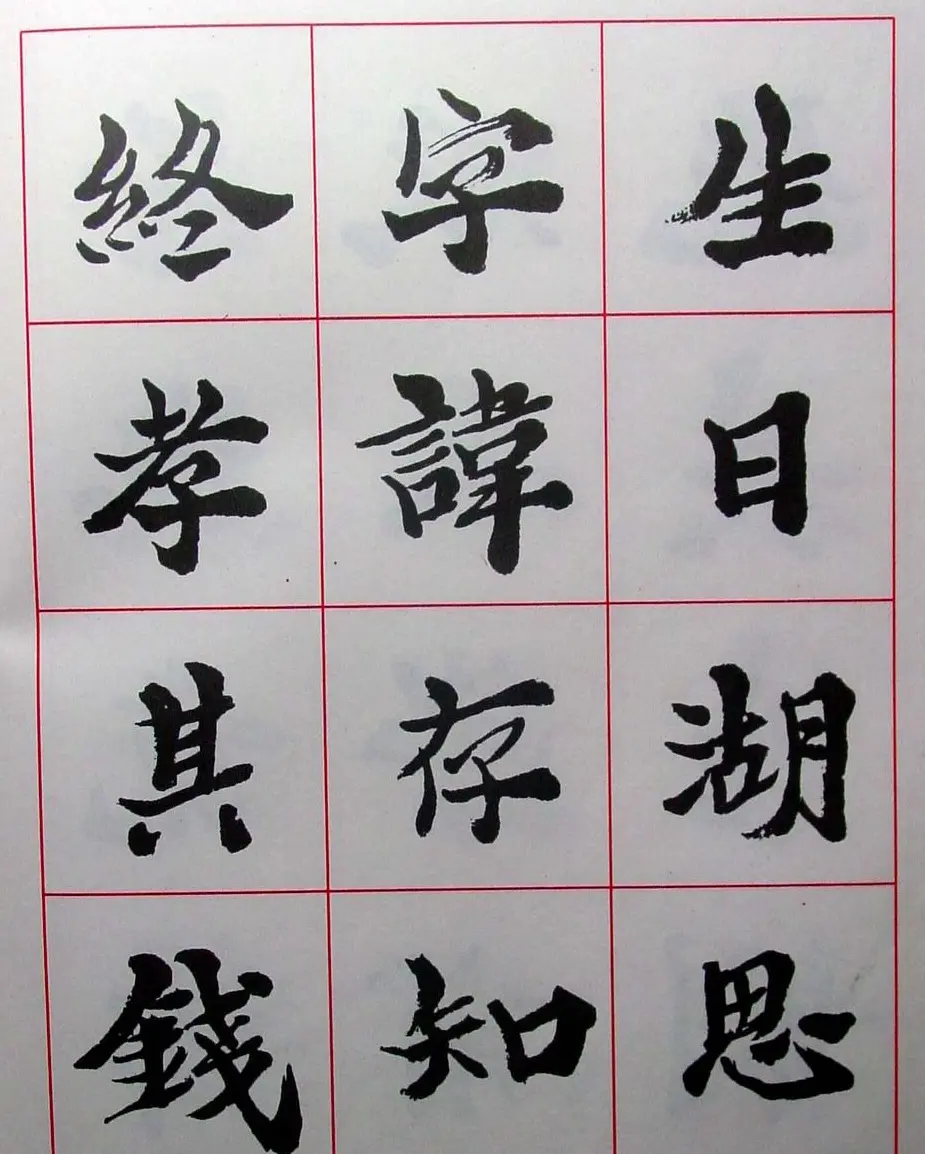 生日湖思
字諱存知
終孝其錢